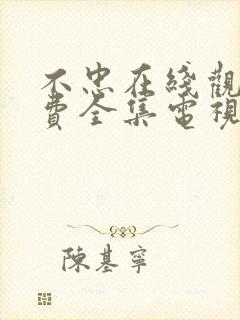 不忠在綫觀
費全集電視
陳基寧